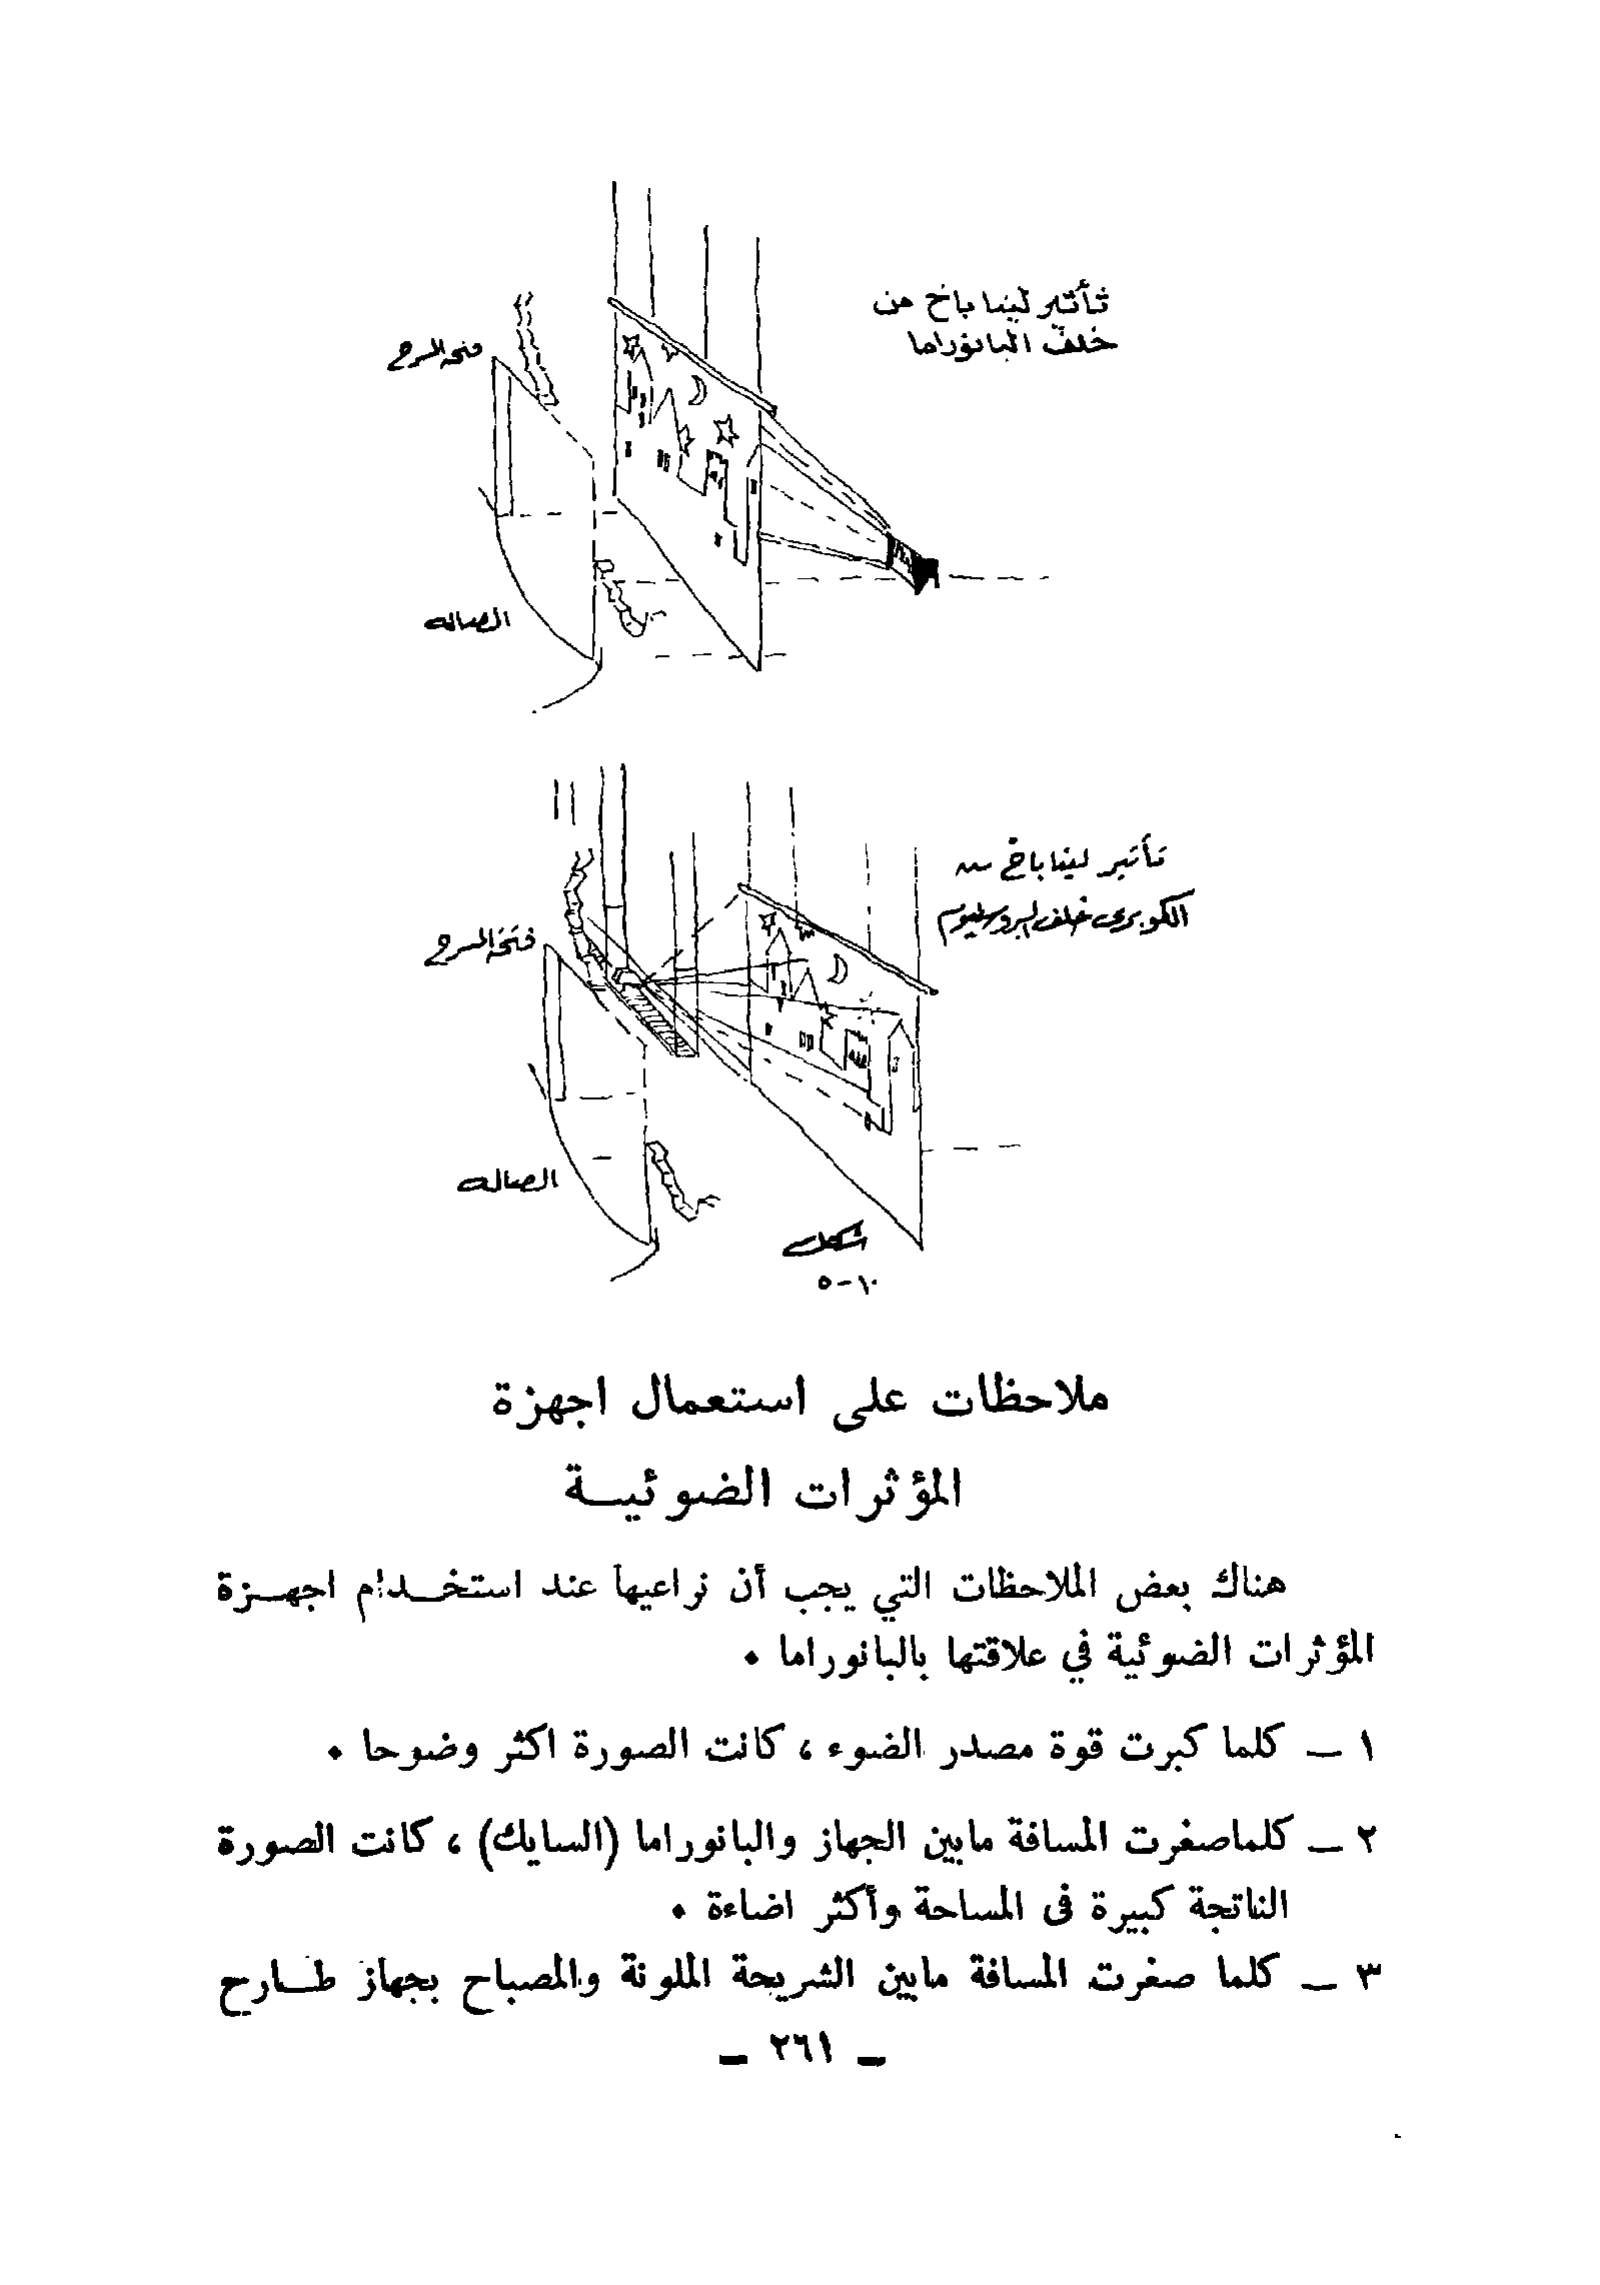 تأثير لينا باخ من
خلف البانوراما
فتحة المسرح
الصاله
تأثير لينا باخ من
الكوبرى خلف البروسنيوم
فتحة المسرح
الصاله
شكل
١٠-٥
ملاحظات على استعمال اجهزة
المؤثرات الضوئيــة
هناك بعض الملاحظات التي يجب أن نراعيها عند استخــدام اجهــزة
المؤثرات الضوئية في علاقتها بالبانوراما .
١ — كلما كبرت قوة مصدر الضوء ، كانت الصورة اكثر وضوحا .
٢ — كلماصغرت المسافة مابين الجهاز والبانوراما (السايك) ، كانت الصورة
الناتجة كبيرة فى المساحة وأكثر اضاءة .
٣ — كلما صغرت المسافة مابين الشريحة الملونة والمصباح بجهاز طــارح
— ٢٦١ —